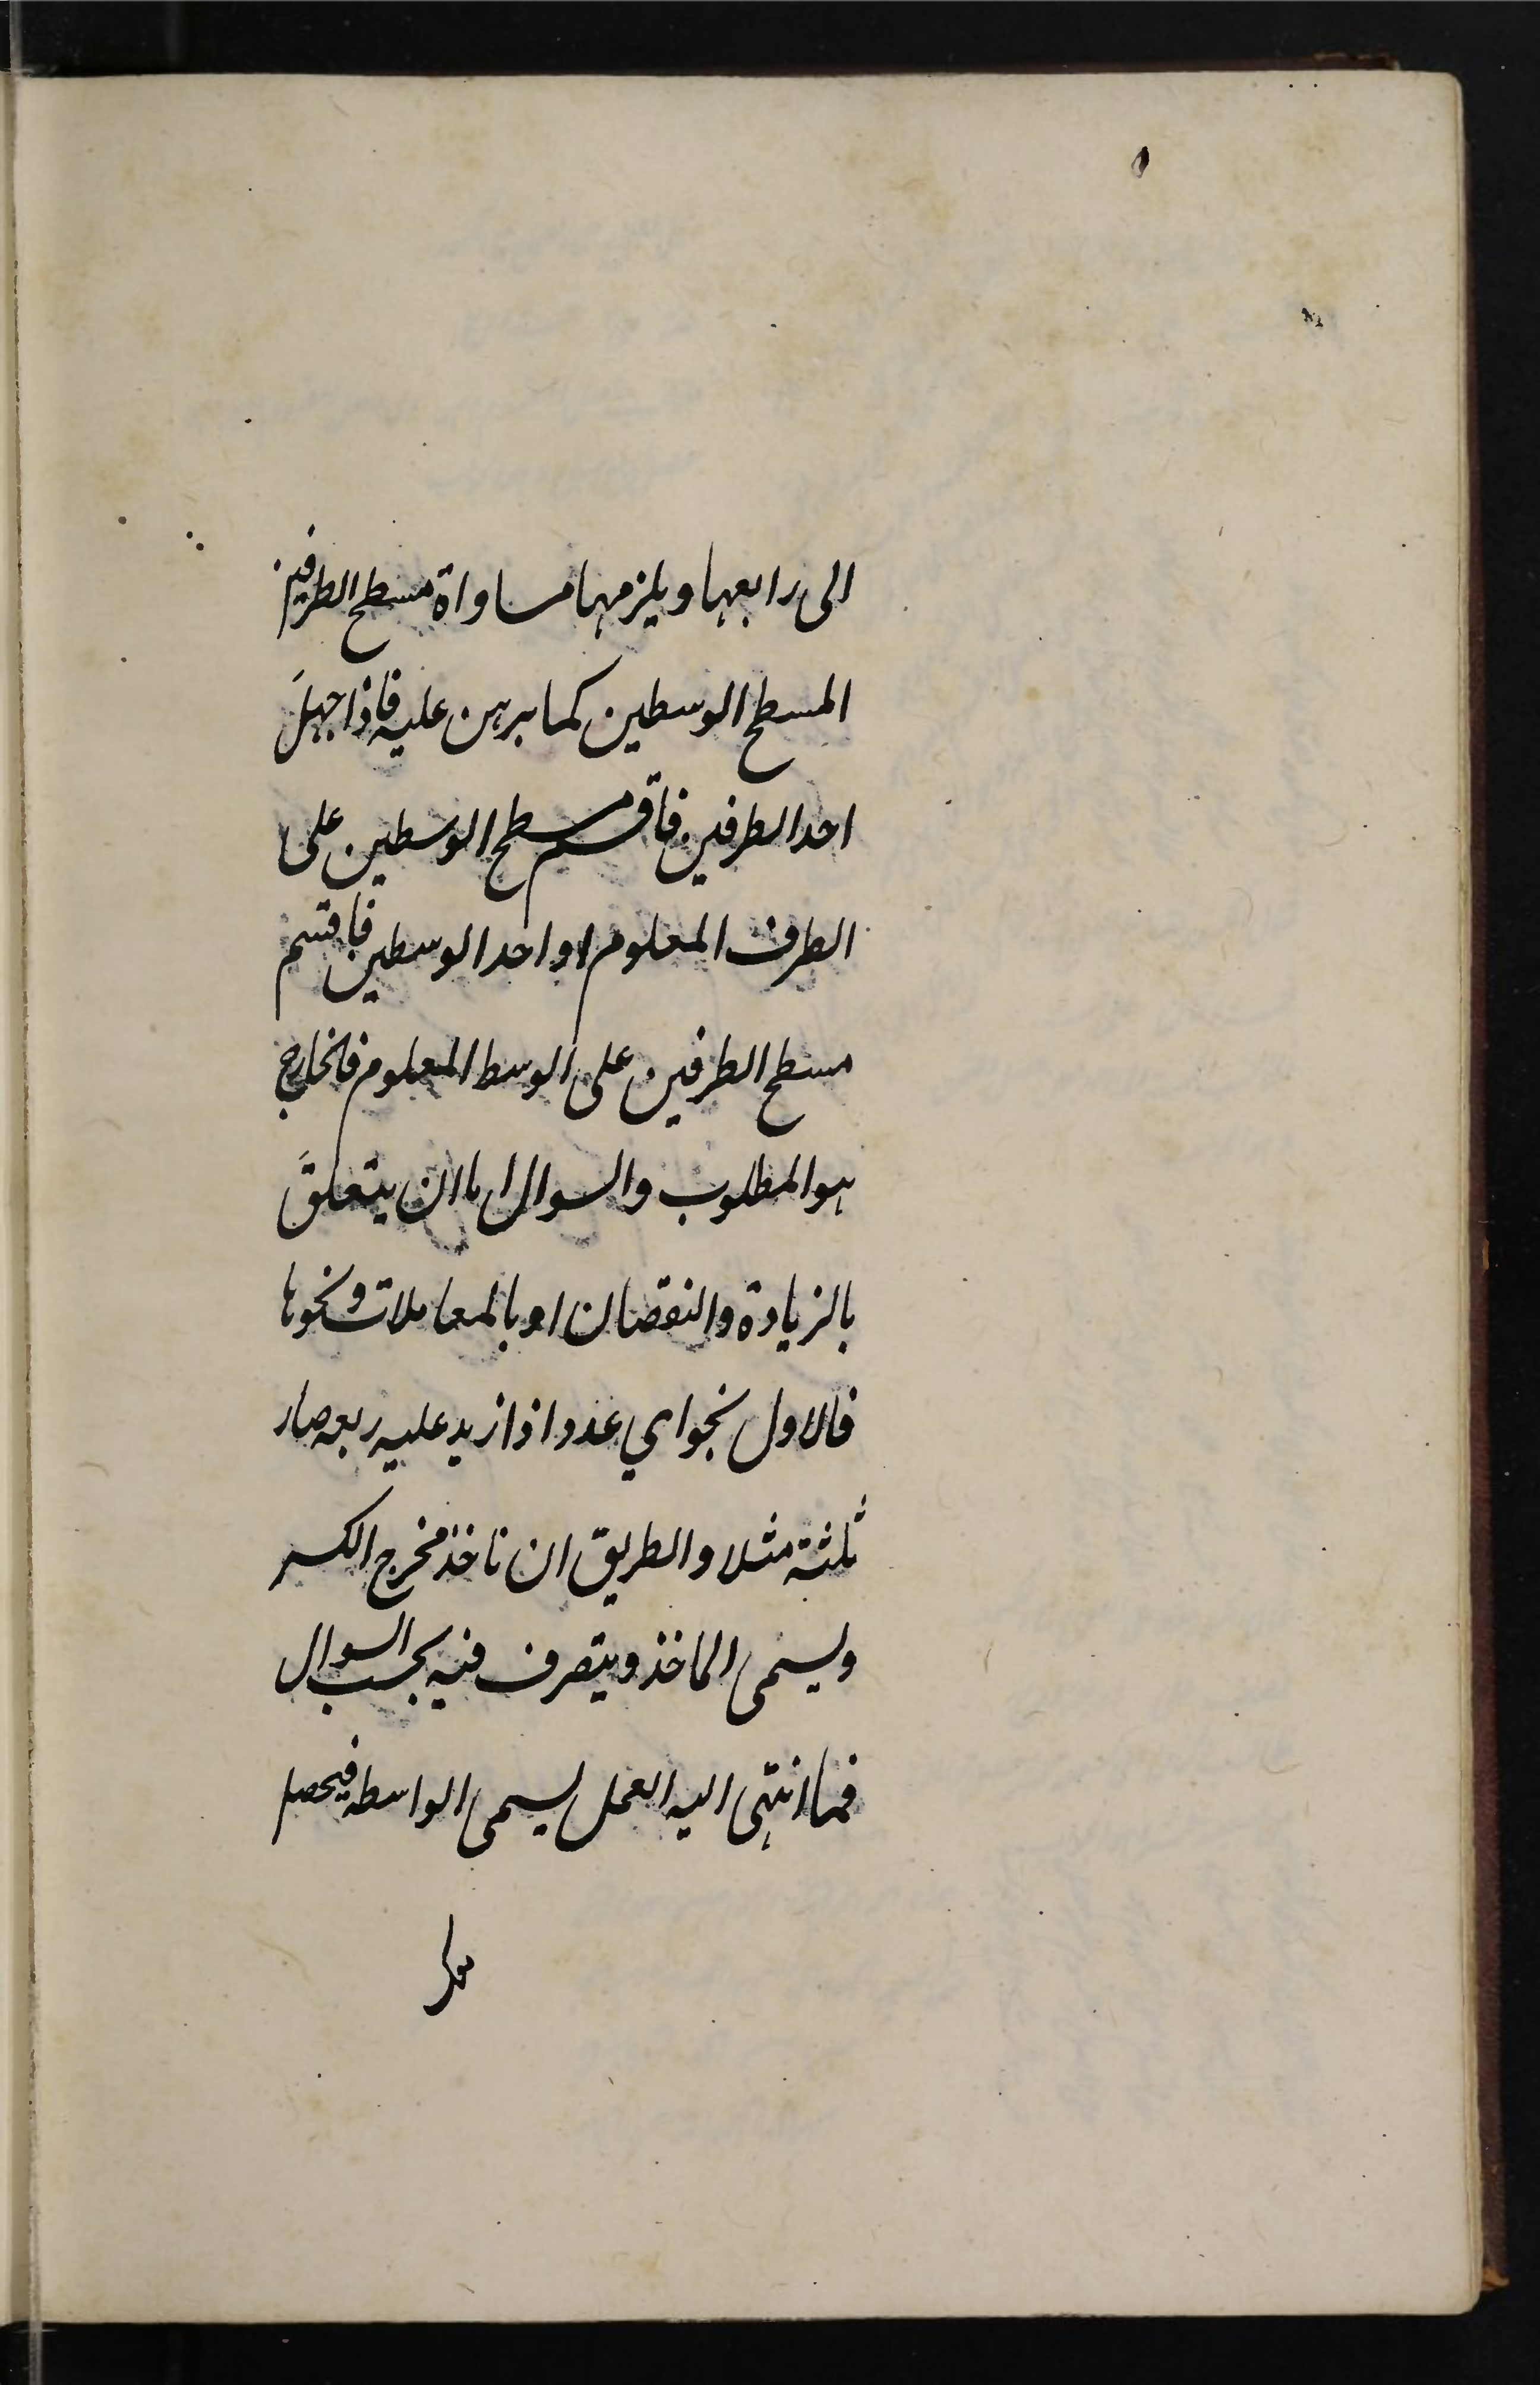 الى رابعها ويلزمها مساواة مسطح الطرفين
المسطح الوسطين كما برهن عليه فاذا جهل
احد الطرفين فاقسم مسطح الوسطين على
الطرف المعلوم او احد الوسطين فاقسم
مسطح الطرفين على الوسط المعلوم فالخارج
هو المطلوب والسوال اما ان يتعلق
بالزيادة والنقصان او بالمعاملات ونحوها
فالاول نحو اي عدد اذا زيد عليه ربعه صار
ثلثة مثلا والطريق ان تاخذ مخرج الكسر
ويسمى الماخذ ويتصرف فيه بحسب السوال
فما انتهى اليه العمل يسمى الواسطه فيحصل